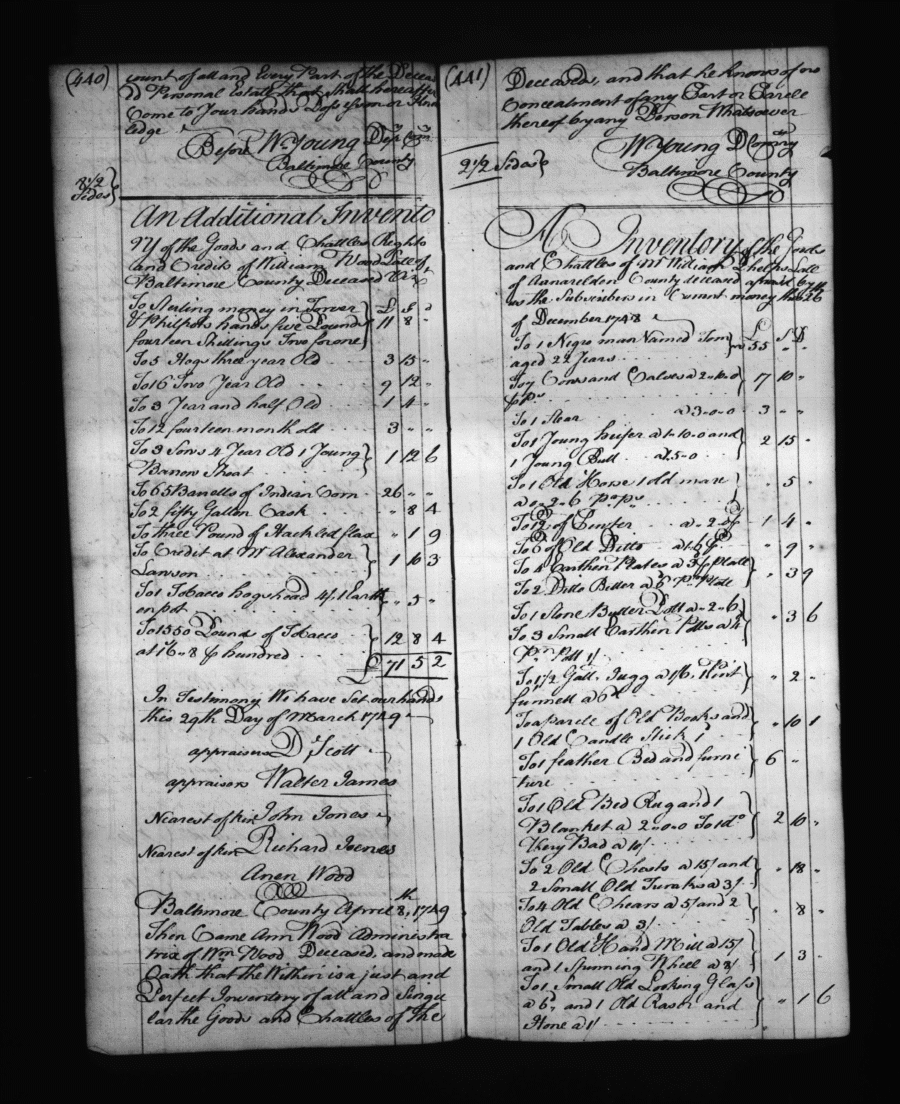 (440)
count of all and Every Part of the Deceas
ed Personal Estate that Shall hereafter
Come to Your hands Possession or Know
ledge
Before Wm Young Dep Com
Baltimore County
8 1/2
Sides
An Additional Invento
ry of the Goods and Chattles Rights
and Credits of William Wood Late of
Baltimore County Deceased Viz
To Sterling money in
& Philpots hands five Pounds
fourteen Shillings Two for one
£ S d
11 8 "
To 5 Hogs three year Old 3 15 "
To 16 Two Year Old 9 12 "
To 3 Year and half Old 1 4 "
To 12 fourteen month old 3 " "
To 3 Sows 4 Year Old 1 Young
Barrow Shoat 1 12 6
To 65 Barrells of Indian Corn 26 " "
To 2 fifty Gallon Cask " 8 4
To three Pound of Hackled flax " 1 9
To Credit at Mr Alexander
Lawson 1 10 3
To 1 Tobacco hogshead 4/. 1 Earth
en pot " 5 "
To 1550 Pounds of Tobacco
at 16 " 8 p hundred 12 8 4
£ 71 5 2
In Testimony We have Set our hands
this 29th Day of March 1749
appraisers D Scott
appraisers Walter James
Nearest of kin John Jones
Nearest of kin Richard Jones
Anen Wood
Baltimore County April 8th, 1749
Then Came Ann Wood Administra
trix of Wm Wood Deceased, and made
Oath that the Within is a just and
Perfect Inventory of all and Singu
lar the Goods and Chattles of the
(441)
Deceased, and that he knows of no
Concealment of any Part or Parcle
thereof by any Person Whatsoever
Wm Young D Comry
Baltimore County
2 1/2 Sides
An Inventory of the Goods
and Chattles of Mr William Phelps Late
of Annarelden County deceased apraisd by
us the Subscribers in Currant money this 26th
of December 1748
£ S D
To 1 Negro man Named Tom
aged 22 Years 55 " "
To 7 Cows and Calves a 2-10-0
p 17 10 "
To 1 Stear a 3-0-0 3 " "
To 1 Young heifer a 1-10-0 and
1 Young Bull a 1.5-0 2 15 "
To 1 Old Horse 1 old mare
a 0-2-6 " 5 "
To 12 of Pewter a 0-2-0 p 1 4 "
To 6 of Old Ditto a 1/6 p " 9 "
To 4 Earthen Plates a p Plate
To 2 Ditto Bitter a Plate " 3 9
To 1 Stone Butter Pott a 0-2-6
To 3 Small Earthen Potts a 4
Pott 1/ " 3 6
To 1 1/2 Gall. Jugg a 1/6, 1 Pint
funnell a 6d " 2 "
To a parcle of Old Books and
1 Old Candle Stick " 10 1
To 1 feather Bed and furni
ture 6 "
To 1 Old Bed Rug and 1
Blanket a 2-0-0 To 1 do
Very Bad a 10/ 2 10 "
To 2 Old Chests a 15/ and
2 Small Old Trunks a 3/ " 18 "
To 4 Old Chears a 5/ and 2
Old Tables a 3/ " 8 "
To 1 Old Hand Mill a 15/
and 1 Spinning Wheel a 8/ 1 3 "
To 1 Small Old Looking Glass
a 6d, and 1 Old Rasor and
Hone a 1/ " 1 6